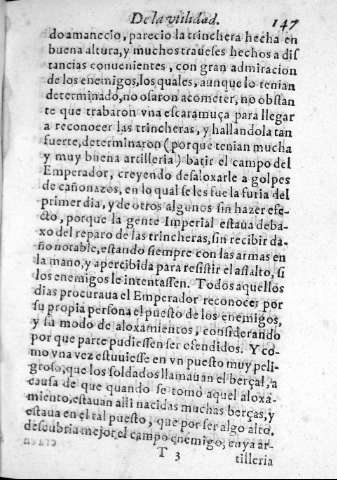 De la vtilidad. 147
do amanecio, parecio la trinchera hecha en
buena altura, y muchos traueses hechos a dis
tancias conuenientes, con gran admiracion
de los enemigos, los quales, aunque lo tenian
determinado, no osaron acometer, no obstan
te que trabaron vna escaramuça para llegar
a reconocer las trincheras, y hallandola tan
fuerte, determinaron (porque tenian mucha
y muy buena artilleria) batir el campo del
Emperador, creyendo desaloxarle a golpes
de cañonazos, en lo qual se les fue la furia del
primer dia, y de otros algunos sin hazer efe-
cto, porque la gente Imperial estaua deba-
xo del reparo de las trincheras, sin recibir da-
ño notable, estando siempre con las armas en
la mano, y apercibida para resistir el assalto, si
los enemigos le intentassen. Todos aquellos
dias procuraua el Emperador reconocer por
su propia persona el puesto de los enemigos,
y su modo de aloxamientos, considerando
por que parte pudiessen ser ofendidos. Y co-
mo vna vez estuuiesse en vn puesto muy peli-
groso, que los soldados llamauan el berçal, a
causa de que quando se tomò aquel aloxa-
miento, estauan alli nacidas muchas berças, y
estaua en el tal puesto, que por ser algo alto,
descubria mejor el campo enemigo, cuya ar-
T 3 tilleria